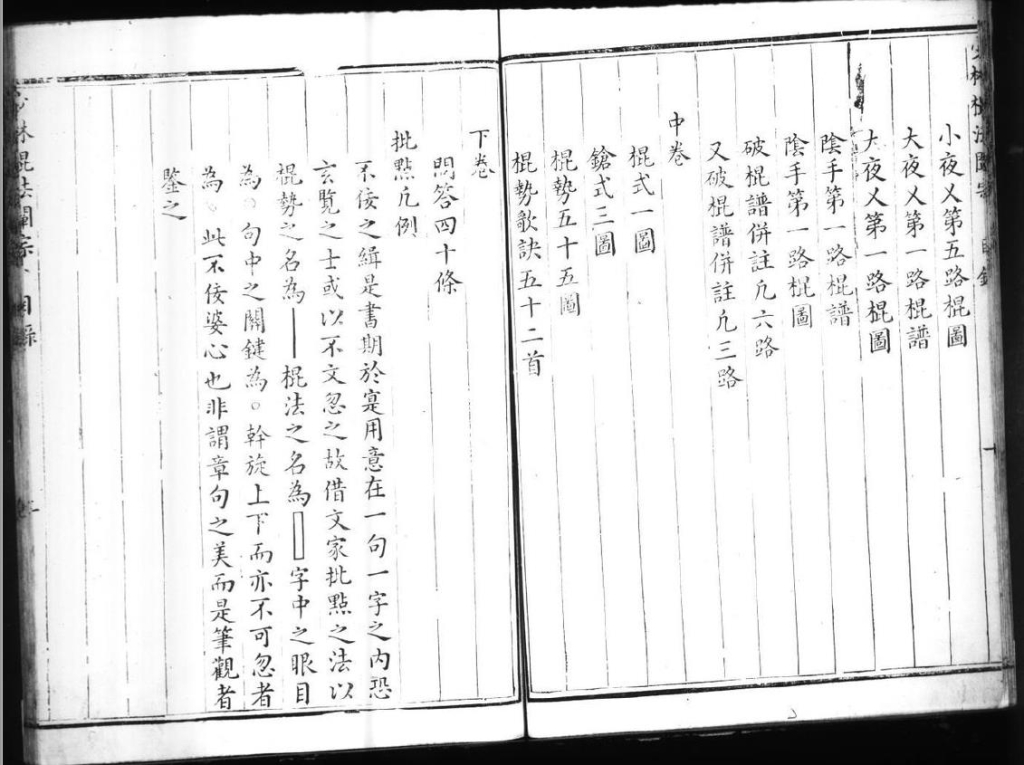 小夜乂第五路棍圖
大夜乂第一路棍譜
大夜乂第一路棍圖
陰手第一路棍譜
陰手第一路棍圖
破棍譜併註凢六路
又破棍譜併註凢三路
中卷
棍式一圖
鎗式三圖
棍勢五十五圖
棍勢歌訣五十二首
下卷
問答四十條
批點凢例
不佞之緝是書期於寔用意在一句一字之內恐
玄覽之士或以不文忽之故借文家批點之法以
棍勢之名為｜棍法之名為▯字中之眼目
為○句中之關鍵為○幹旋上下而亦不可忽者
為、此不佞婆心也非謂章句之美而是筆觀者
鑒之